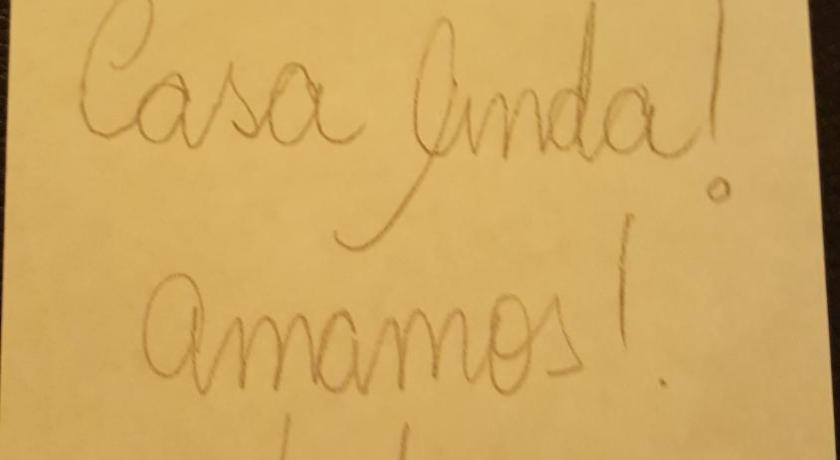 Casa linda!
Amamos!